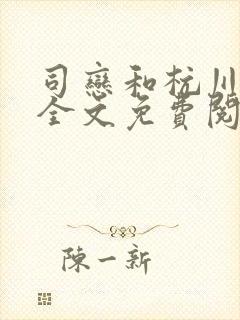 司戀和杭川
全文免費閱
陳一新